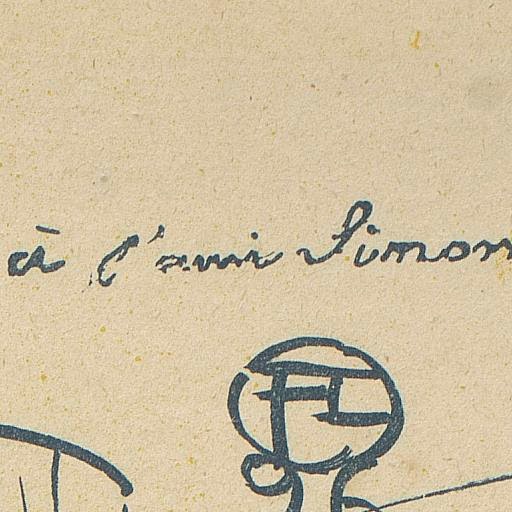 à l'ami Simon